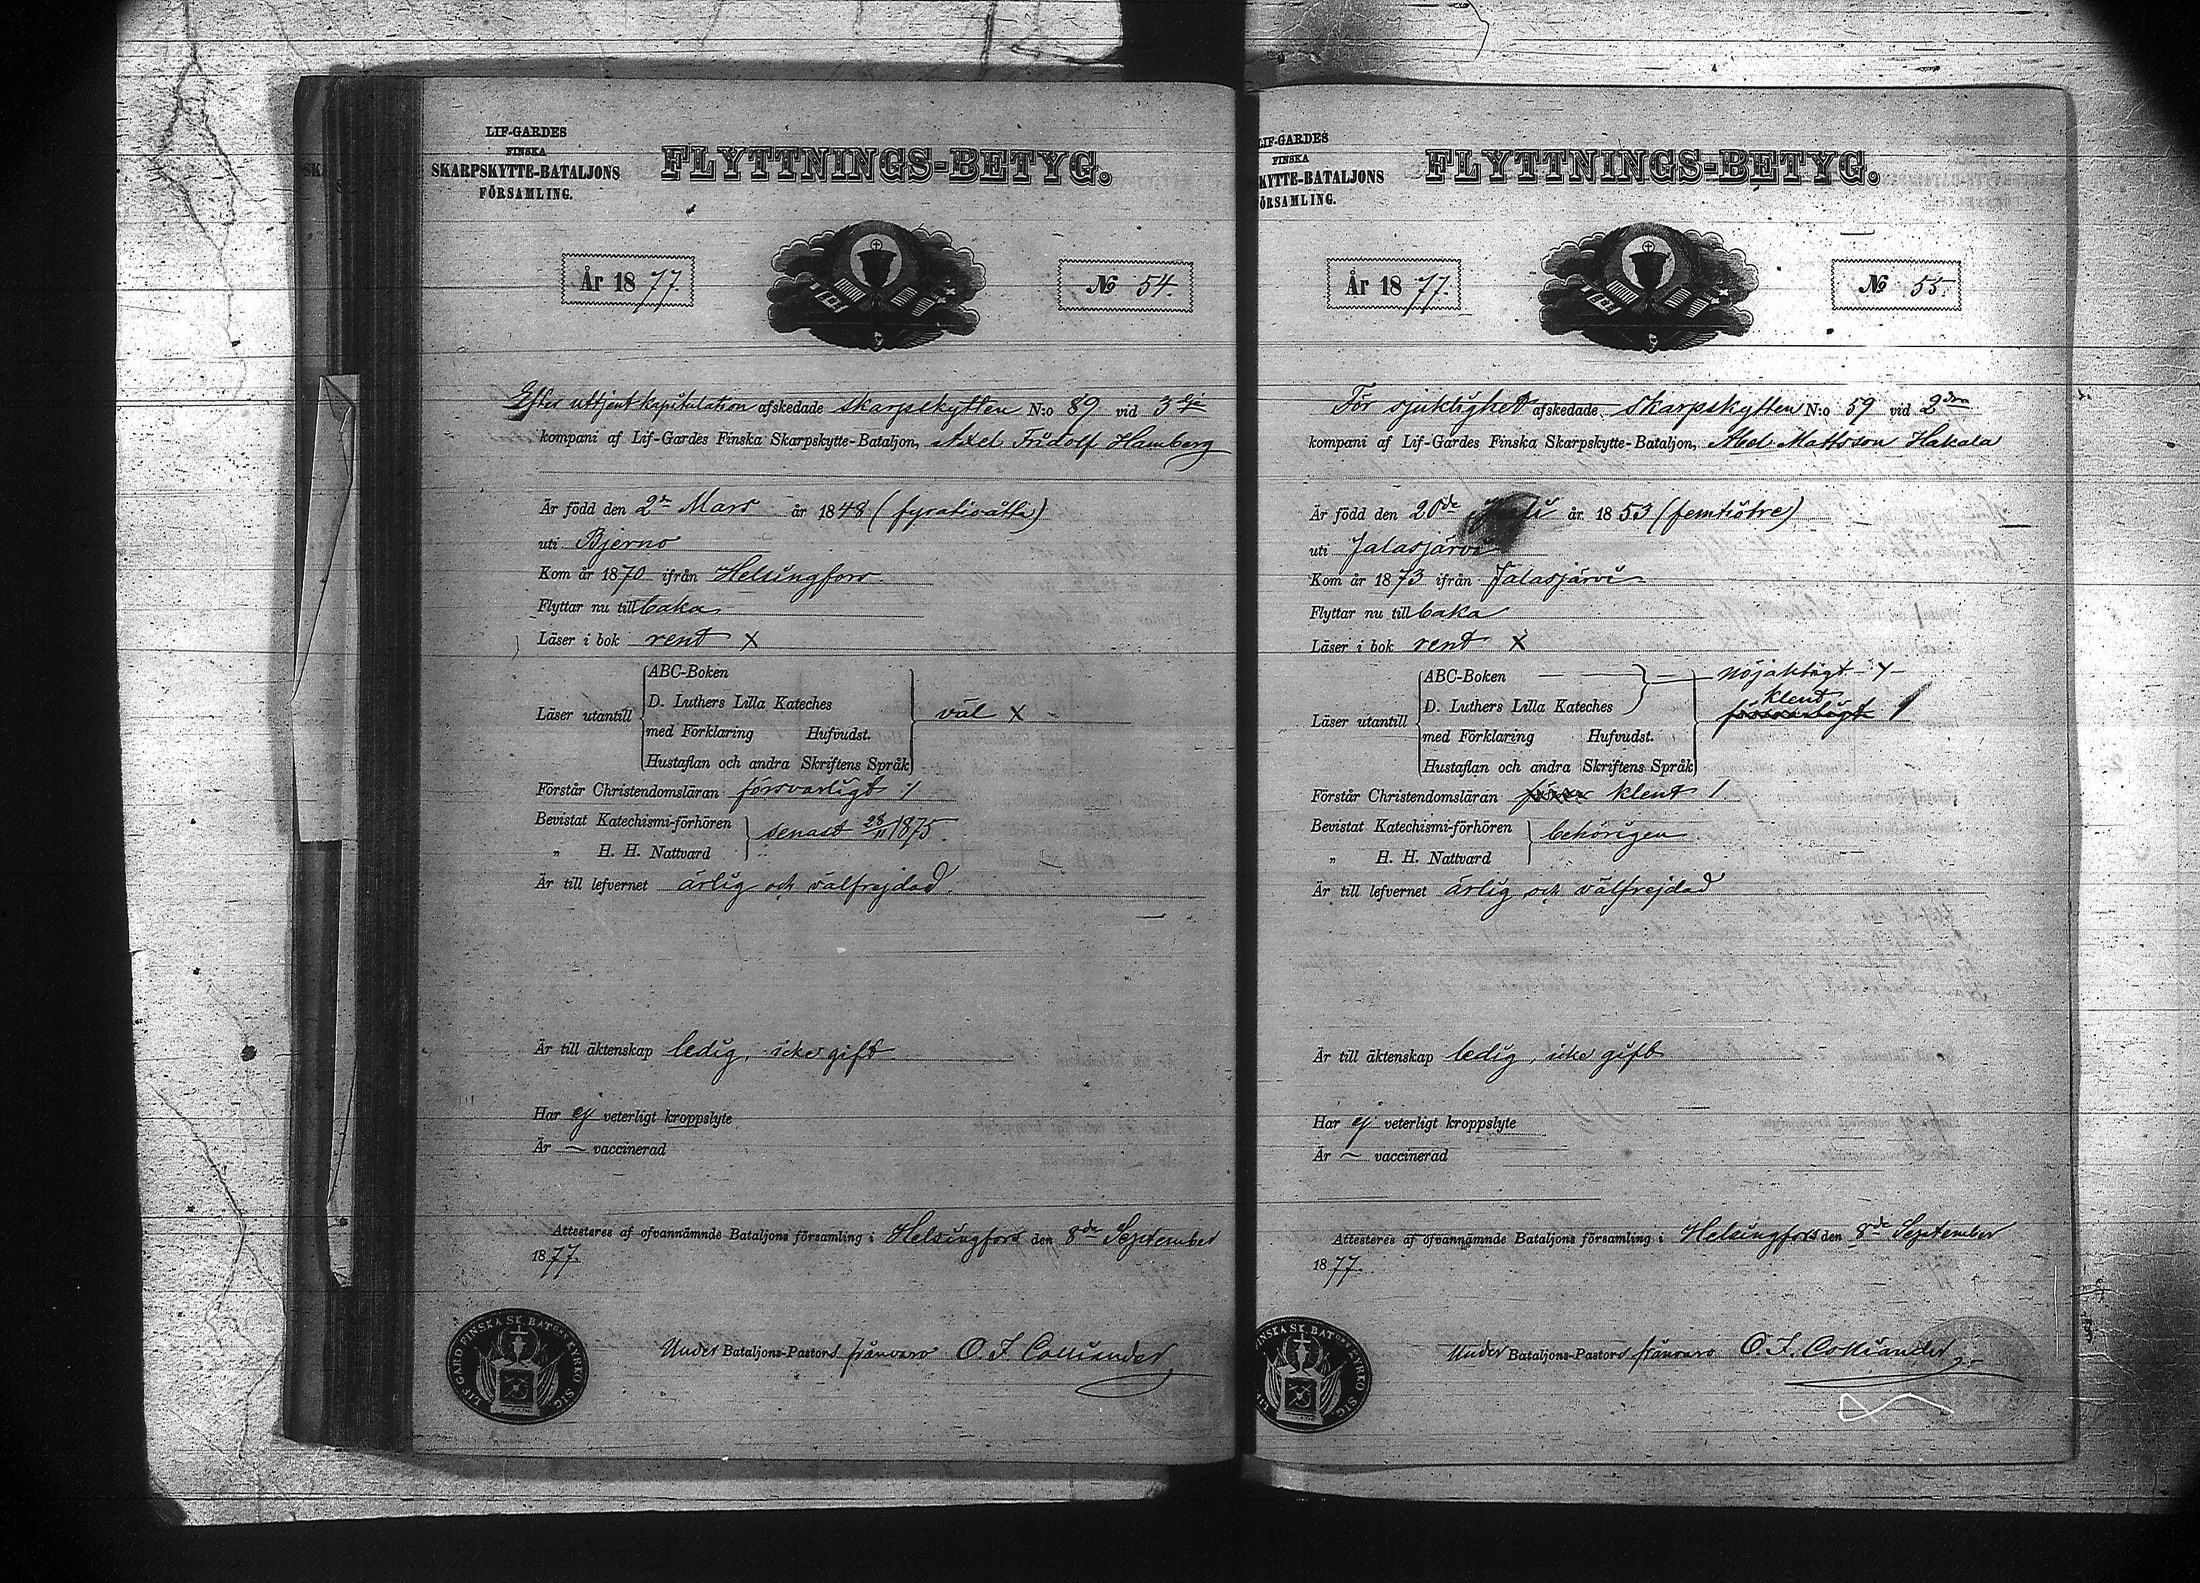 LIF-GARDES
FINSKA
SKARPSKYTTE-BATALJONS
FÖRSAMLING.
FLYTTNINGS-BETYG.
År 1877.
No 54.
Efter uttjent kapitulation afskedade skarpskytten N:o 89 vid 3dje
kompani af Lif-Gardes Finska Skarpskytte-Bataljon, Axel Fridolf Hamberg
Är född den 2n Mars år 1848 (fyratioåtta)
uti Bjerno
Kom år 1870 ifrån Helsingfors
Flyttar nu till baka
Läser i bok rent X
ABC-Boken
D. Luthers Lilla Kateches
Läser utantill väl X
med Förklaring Hufvudst.
Hustaflan och andra Skriftens Språk
Förstår Christendomsläran försvarligt /
Bevistat Katechismi-förhören senast 28/11 1875.
„ H. H. Nattvard
Är till lefvernet ärlig och välfrejdad.
Är till äktenskap ledig, icke gift
Har ej veterligt kroppslyte
Är — vaccinerad
Attesteras af ofvannämnde Bataljons församling i Helsingfors den 8de September
1877.
LIF GARD FINSKA SK. BATONS KYRKO SIG
Under Bataljons-Pastors frånvaro O. I. Colliander
LIF-GARDES
FINSKA
KYTTE-BATALJONS
ÖRSAMLING.
FLYTTNINGS-BETYG.
År 1877.
No 55.
För sjuklighet afskedade skarpskytten N:o 59 vid 2dra
kompani af Lif-Gardes Finska Skarpskytte-Bataljon, Abel Mattsson Hakala
Är född den 20de år 1853 (femtiotre)
uti Jalasjärvi
Kom år 1873 ifrån Jalasjärvi
Flyttar nu till baka
Läser i bok rent X
ABC-Boken — — — nöjaktigt
D. Luthers Lilla Kateches klent
Läser utantill försvarligt /
med Förklaring Hufvudst.
Hustaflan och andra Skriftens Språk
Förstår Christendomsläran klent /
Bevistat Katechismi-förhören behörigen
„ H. H. Nattvard
Är till lefvernet ärlig och välfrejdad
Är till äktenskap ledig, icke gift
Har ej veterligt kroppslyte
Är — vaccinerad
Attesteras af ofvannämnde Bataljons församling i Helsingfors den 8de September
1877.
FINSKA SK. BATONS KYRKO SIG
Under Bataljons-Pastors frånvaro O. I. Colliander